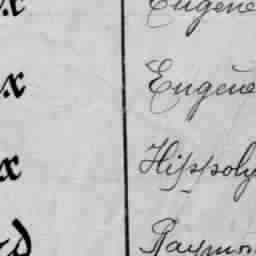 x Eugène
x Eugène
x Hippoly
d Raymon